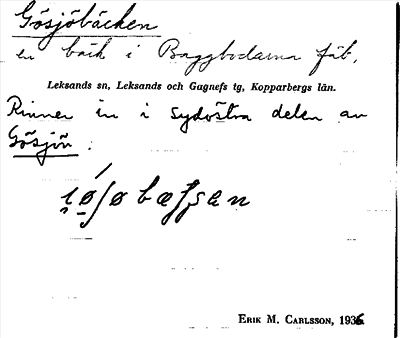 Gösjöbäcken
en bäck i Baggbodarna fäb.
Leksands sn, Leksands och Gagnefs tg, Kopparbergs län.
Rinner in i sydöstra delen av
Gösjön.
Erik M. Carlsson, 1936.